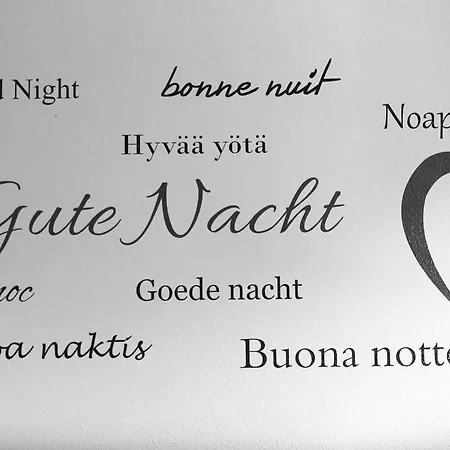 Night
bonne nuit
Noap
Hyvää yötä
Gute Nacht
noc
Goede nacht
naktis
Buona notte